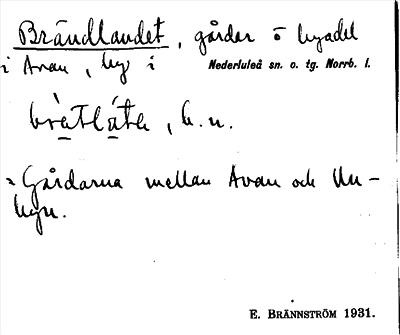 Brändlandet, gårdar o byadel
i Avan, by i Nederluleå sn. o. tg. Norrb. l.
bràtláta, b. n.
Gårdarna mellan Avan och Un-
byn.
E. BRÄNNSTRÖM 1931.